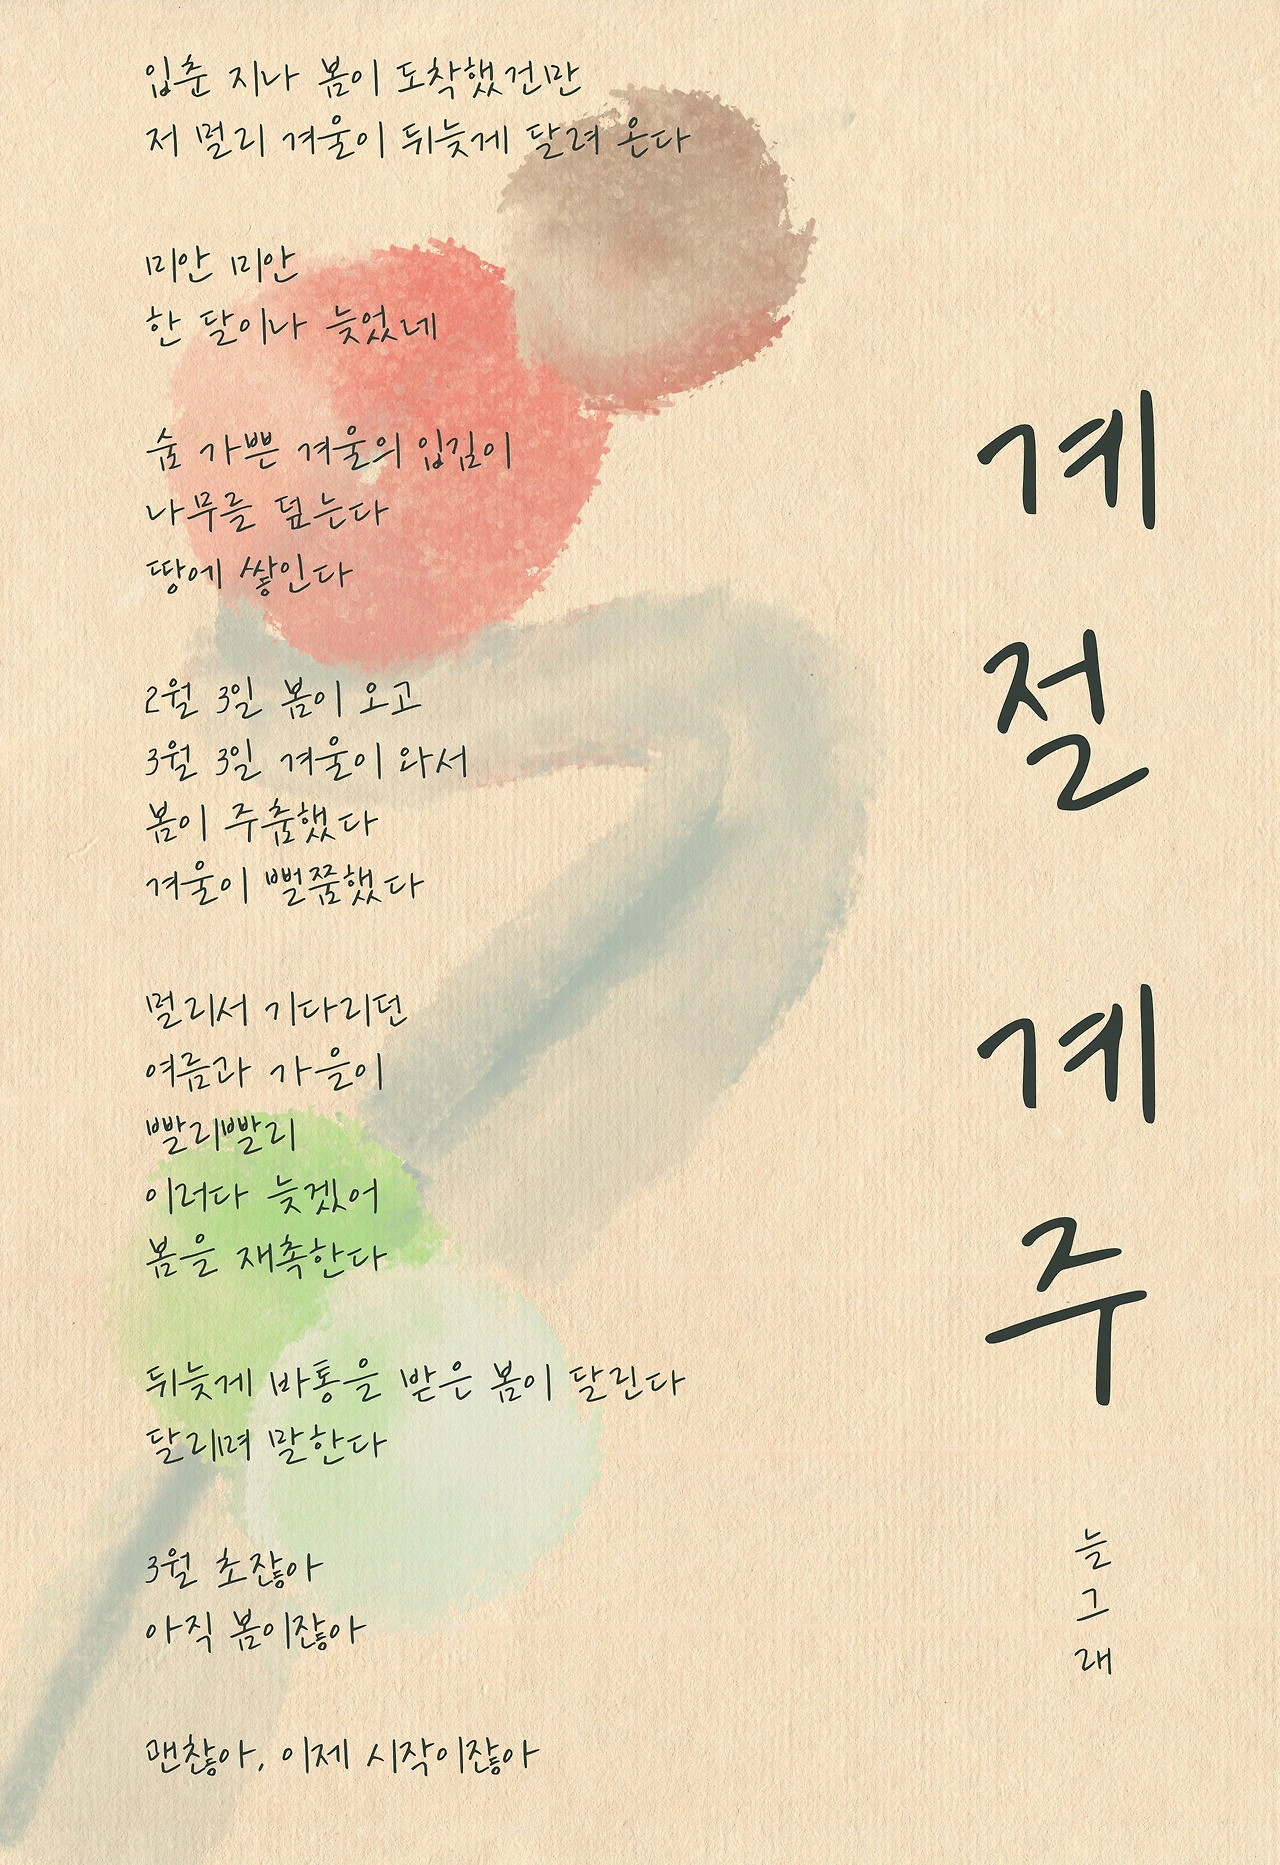 입춘 지나 봄이 도착했건만
저 멀리 겨울이 뒤늦게 달려 온다
미안 미안
한 달이나 늦었네
숨 가쁜 겨울의 입김이
나무를 덮는다
땅에 쌓인다
2월 3일 봄이 오고
3월 3일 겨울이 와서
봄이 주춤했다
겨울이 뻘쭘했다
멀리서 기다리던
여름과 가을이
빨리빨리
이러다 늦겠어
봄을 재촉한다
뒤늦게 바통을 받은 봄이 달린다
달리며 말한다
3월 초잖아
아직 봄이잖아
괜찮아, 이제 시작이잖아
계절계주
늘그래